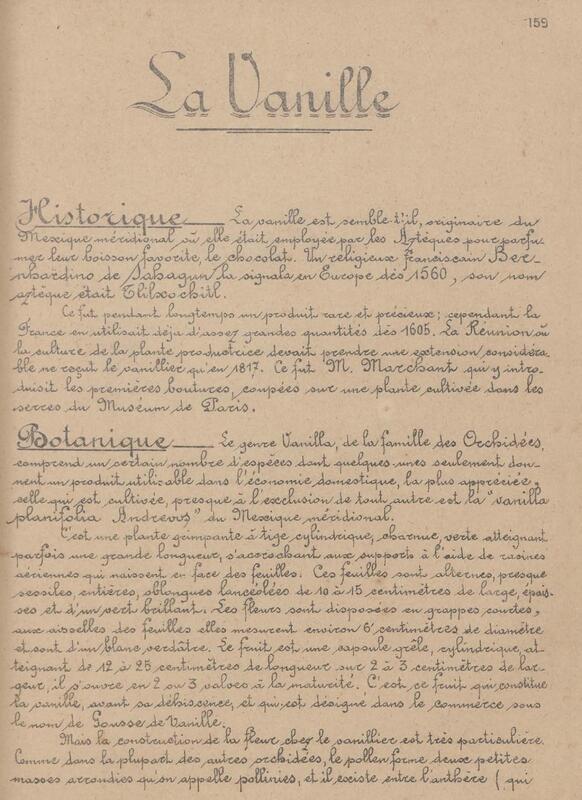 159
La Vanille
Historique La vanille est semble-t'il, originaire du
Mexique méridional où elle était employée par les Aztèques pour parfu-
mer leur boisson favorite, le chocolat. Un religieux franciscain Ber-
nhardino de Sahagun la signala en Europe dès 1560, son nom
aztèque était Tlilxochitl.
Ce fut pendant longtemps un produit rare et précieux; cependant la
France en utilisait déja d'assez grandes quantités dès 1605. La Réunion où
la culture de la plante productrice devait prendre une extension considéra-
ble ne reçut le vanillier qu'en 1817. Ce fut M. Marchant qui y intro-
duisit les premières boutures, coupées sur une plante cultivée dans les
serres du Muséum de Paris.
Botanique Le genre Vanilla, de la famille des Orchidées,
comprend un certain nombre d'espèces dont quelques unes seulement don-
nent un produit utilisable dans l'économie domestique, la plus appréciée,
celle qui est cultivée, presque à l'exclusion de tout autre est la "vanilla
planifolia Andrews" du Mexique méridional.
C'est une plante grimpante à tige cylindrique, charnue, verte atteignant
parfois une grande longueur, s'accrochant aux supports à l'aide de racines
aériennes qui naissent en face des feuilles. Ces feuilles sont alternes, presque
sessiles entières, oblongues lancéolées de 10 à 15 centimètres de large, épais-
ses et d'un vert brillant. Les fleurs sont disposées en grappes courtes,
aux aisselles des feuilles elles mesurent environ 6 centimètres de diamètre
et sont d'un blanc verdâtre. Le fruit est une capsule grêle, cylindrique, at-
teignant de 12 à 25 centimètres de longueur sur 2 à 3 centimètres de lar-
geur, il s'ouvre en 2 ou 3 valves à la maturité. C'est ce fruit qui constitue
la vanille, avant sa déhiscence, et qui est désigné dans le commerce sous
le nom de Gousse de Vanille.
Mais la construction de la fleur chez le vanillier est très particulière.
Comme dans la plupart des autres orchidées, le pollen forme deux petites
masses arrondies qu'on appelle pollinies, et il existe entre l'anthère (qui